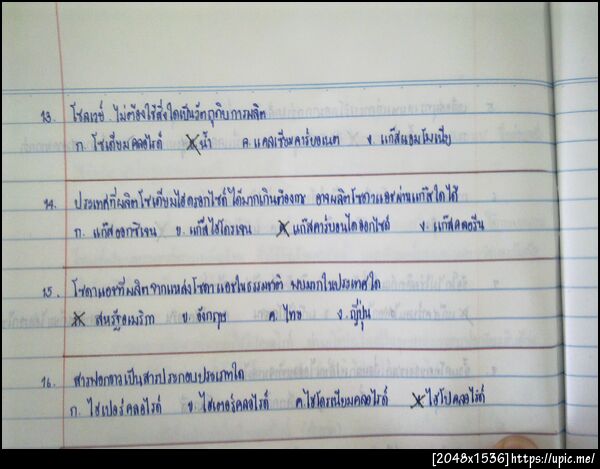 13. โซลเวย์ ไม่ต้องใช้สิ่งใดเป็นวัตถุดิบการผลิต
ก. โซเดียมคลอไรด์ ข.น้ำ ค.แคลเซียมคาร์บอเนต ง. แก๊สแอมโมเนีย
14. ประเทศที่ผลิตโซเดียมไฮดรอกไซด์ได้มากเกินต้องการ อาจผลิตโซดาแอชผ่านแก๊สใดได้
ก. แก๊สออกซิเจน ข. แก๊สไฮโดรเจน ค แก๊สคาร์บอนไดออกไซด์ ง. แก๊สคลอรีน
15. โซดาแอชที่ผลิตจากแหล่งโซดาแอชในธรรมชาติ พบมากในประเทศใด
ก สหรัฐอเมริกา ข. อังกฤษ ค. ไทย ง. ญี่ปุ่น
16. สารฟอกขาวเป็นสารประกอบประเภทใด
ก. ไฮเปอร์คลอไรด์ ข. ไฮเตอร์คลอไรด์ ค.ไฮโดรเนียมคลอไรด์ ง ไฮโปคลอไรต์
[2048x1536]https://upic.me/